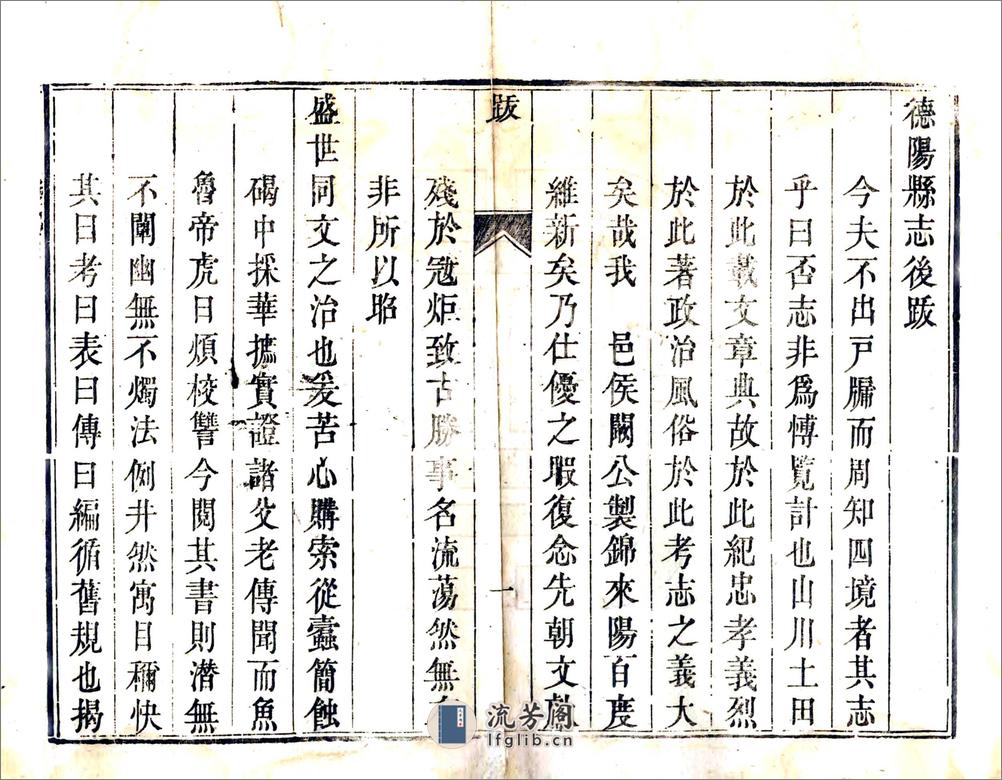 德陽縣志後跋
今夫不出戸牖而周知四境者其志
乎曰否志非爲愽覧計也山川土田
於此載文章典故於此紀忠孝義烈
於此著政治風俗於此考志之義大
矣哉我　邑侯闕公製錦來陽百度
維新矣乃仕優之暇復念先朝文獻
跋
一
殘於冦炬致古勝事名流蕩然無
非所以昭
盛世同文之治也爰苦心購索從蠹簡蝕
碣中採華摭實證諸父老傳聞而魚
魯帝虎日煩校讐今閱其書則潜無
不闡幽無不燭法例井然寓目稱快
其曰考曰表曰傳曰編循舊規也揭
流芳阁
lfglib.cn